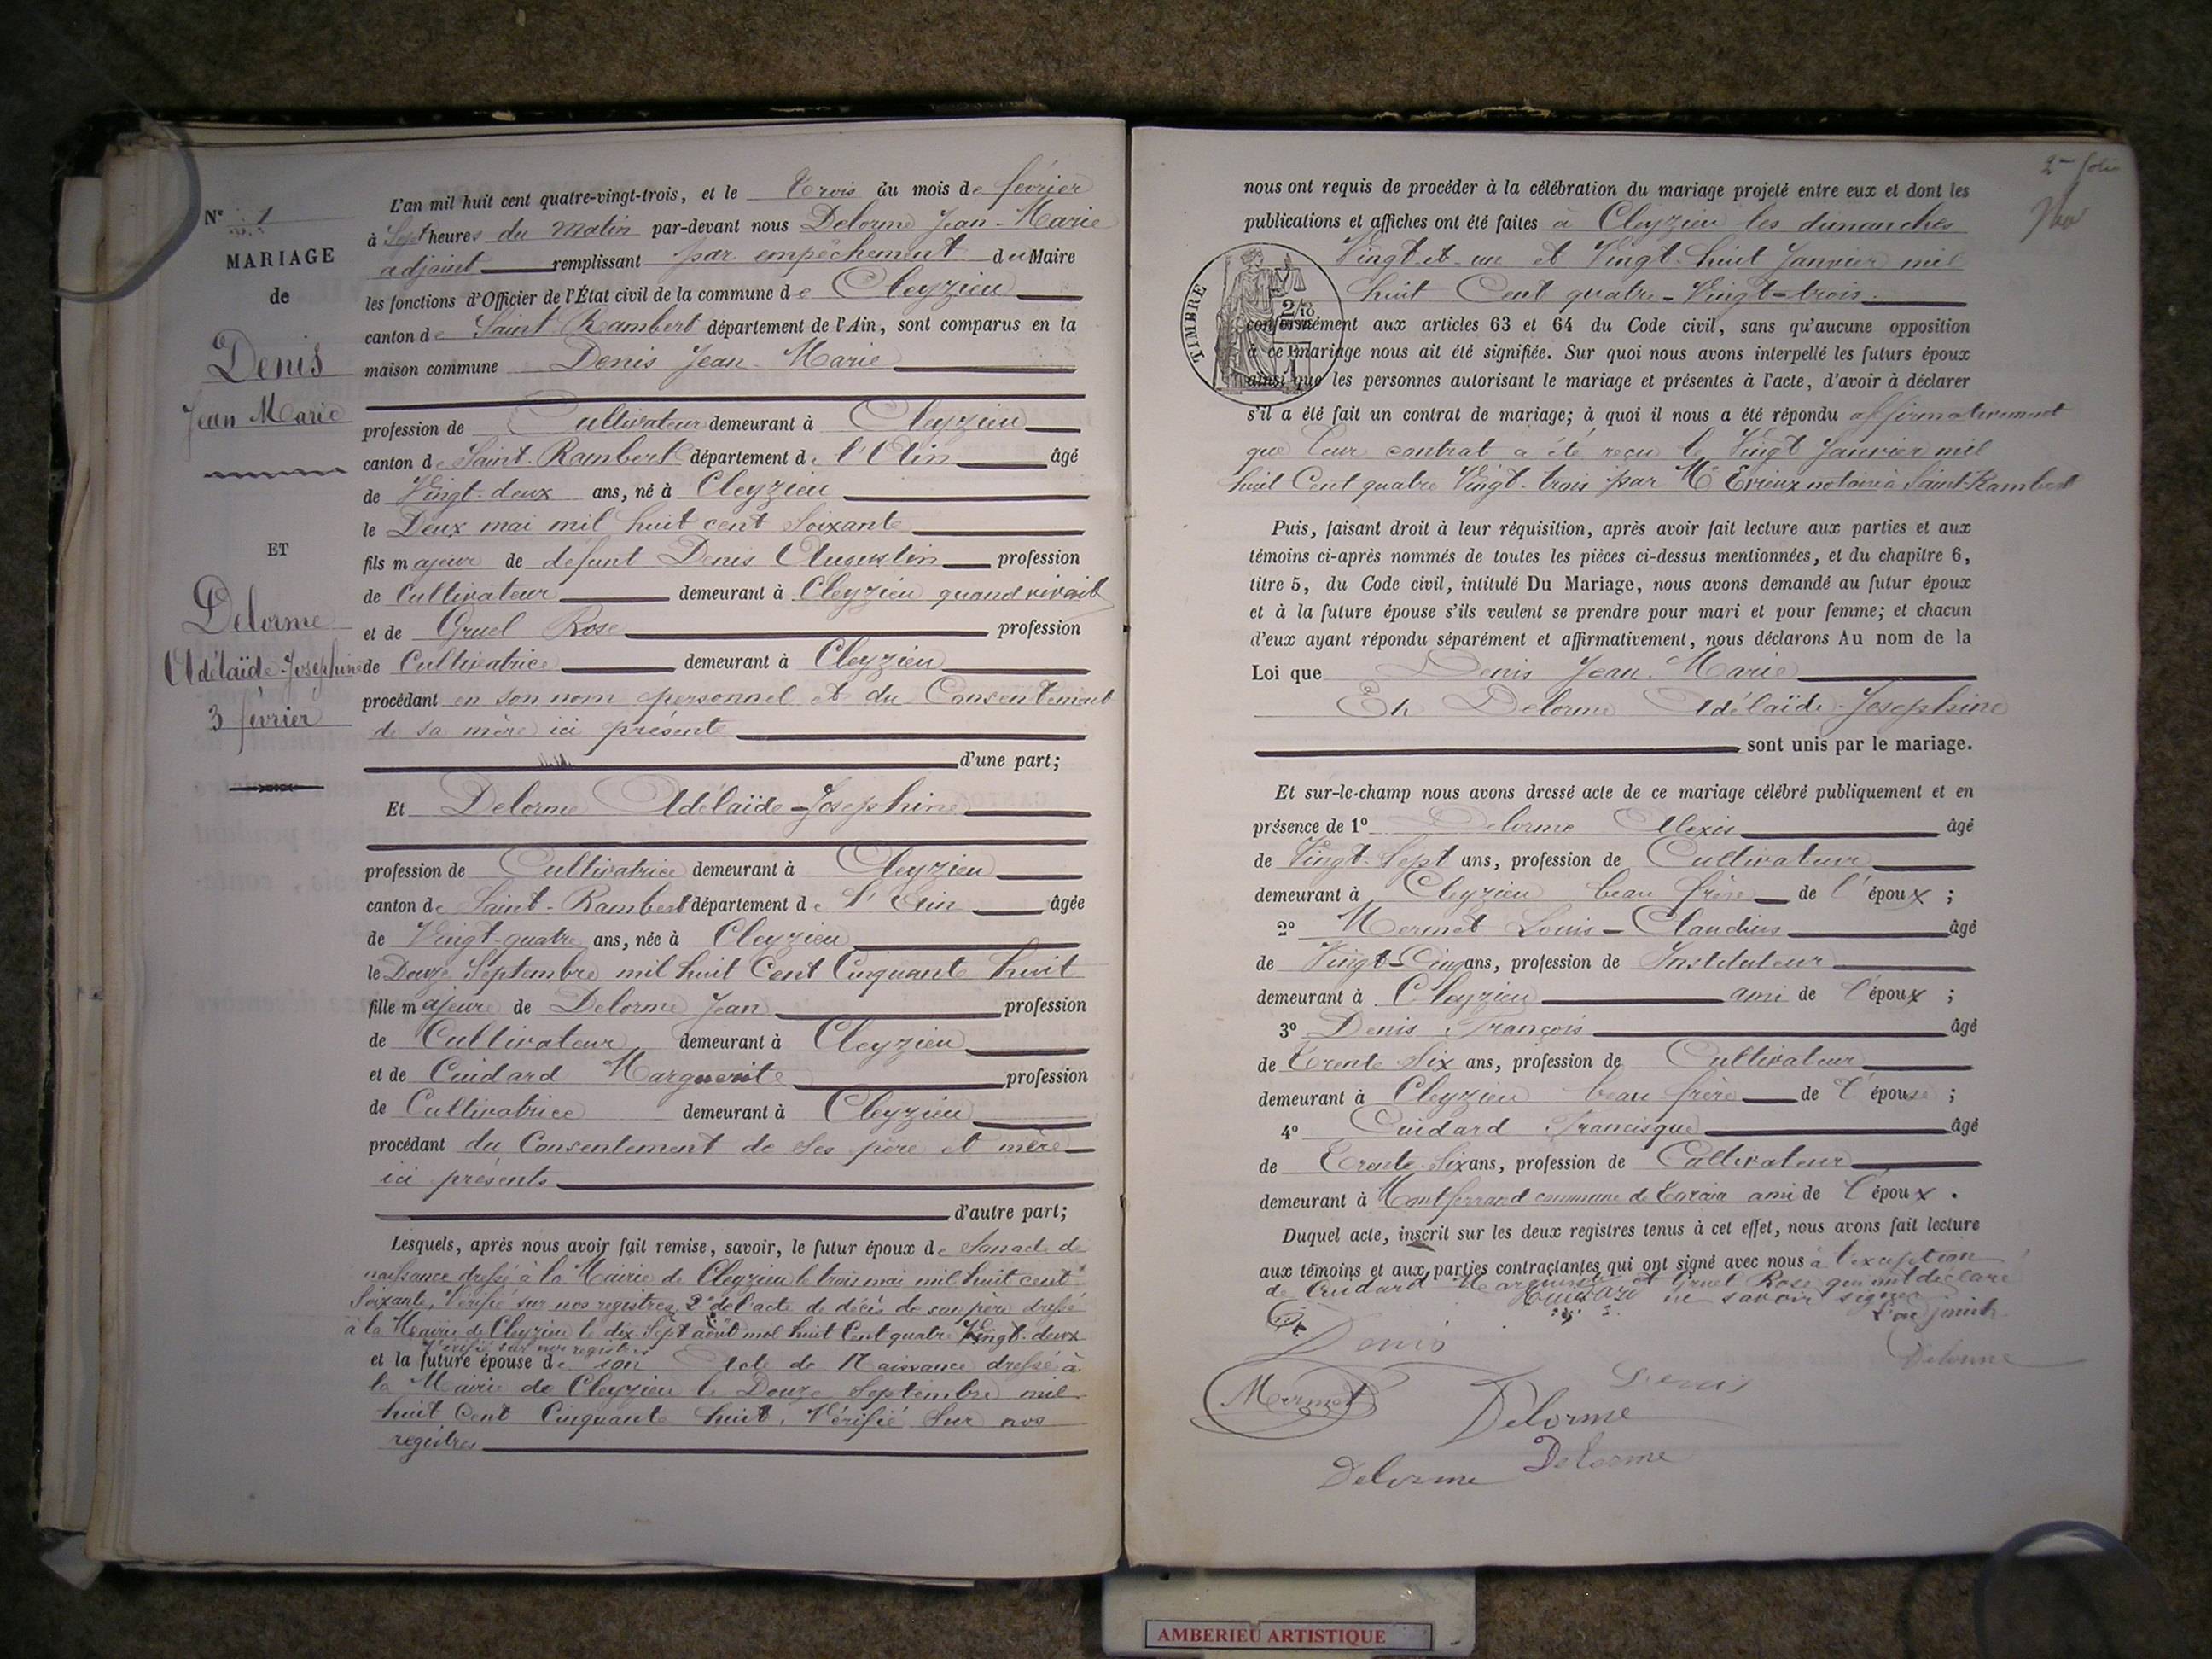 N° 1
MARIAGE
de
Denis
Jean Marie
ET
Delorme
Adélaïde-Josephine
3 février
L'an mil huit cent quatre-vingt-trois, et le Trois du mois de février
à Sept heures du Matin par-devant nous Delorme Jean-Marie
adjoint remplissant par empêchement du Maire
les fonctions d'Officier de l'État civil de la commune de Cleyzieu
canton de Saint-Rambert département de l'Ain, sont comparus en la
maison commune Denis Jean-Marie
profession de Cultivateur demeurant à Cleyzieu
canton de Saint-Rambert département de l'Ain âgé
de Vingt-deux ans, né à Cleyzieu
le Deux mai mil huit cent Soixante
fils majeur de defunt Denis Augustin profession
de Cultivateur demeurant à Cleyzieu quand vivait
et de Gruel Rose profession
de Cultivatrice demeurant à Cleyzieu
procédant en son nom personnel et du Consentement
de sa mère ici présente
d'une part;
Et Delorme Adélaïde-Josephine
profession de Cultivatrice demeurant à Cleyzieu
canton de Saint-Rambert département de l'Ain âgée
de Vingt-quatre ans, née à Cleyzieu
le Douze Septembre mil huit Cent Cinquante huit
fille majeure de Delorme Jean profession
de Cultivateur demeurant à Cleyzieu
et de Cuidard Marguerite profession
de Cultivatrice demeurant à Cleyzieu
procédant du Consentement de ses père et mère
ici présents
d'autre part;
Lesquels, après nous avoir fait remise, savoir, le futur époux de Son acte de
naissance dressé à la Mairie de Cleyzieu le trois mai mil huit cent
Soixante, Vérifié sur nos registres, 2° de l'acte de décès de son père dressé
à la Mairie de Cleyzieu le dix-Sept août mil huit Cent quatre Vingt-deux
Vérifié sur nos registres
et la future épouse de son Acte de Naissance dressé à
la Mairie de Cleyzieu le Douze Septembre mil
huit Cent Cinquante huit, Vérifié Sur nos
registres
2me folio
nous ont requis de procéder à la célébration du mariage projeté entre eux et dont les
publications et affiches ont été faites à Cleyzieu les dimanches
Vingt-et-un et Vingt-huit Janvier mil
huit Cent quatre-Vingt-trois.
TIMBRE
conformément aux articles 63 et 64 du Code civil, sans qu'aucune opposition
à ce mariage nous ait été signifiée. Sur quoi nous avons interpellé les futurs époux
ainsi que les personnes autorisant le mariage et présentes à l'acte, d'avoir à déclarer
s'il a été fait un contrat de mariage; à quoi il nous a été répondu affirmativement
que leur contrat a été reçu le Vingt Janvier mil
huit Cent quatre Vingt-trois par Me notaire à Saint-Rambert
Puis, faisant droit à leur réquisition, après avoir fait lecture aux parties et aux
témoins ci-après nommés de toutes les pièces ci-dessus mentionnées, et du chapitre 6,
titre 5, du Code civil, intitulé Du Mariage, nous avons demandé au futur époux
et à la future épouse s'ils veulent se prendre pour mari et pour femme; et chacun
d'eux ayant répondu séparément et affirmativement, nous déclarons Au nom de la
Loi que Denis Jean-Marie
Et Delorme Adélaïde-Josephine
sont unis par le mariage.
Et sur-le-champ nous avons dressé acte de ce mariage célébré publiquement et en
présence de 1° Delorme Alexis âgé
de Vingt-Sept ans, profession de Cultivateur
demeurant à Cleyzieu beau frère de l'époux ;
2° Mermet Louis-Claudius âgé
de Vingt-Cinq ans, profession de Instituteur
demeurant à Cleyzieu ami de l'époux ;
3° Denis François âgé
de Trente Six ans, profession de Cultivateur
demeurant à Cleyzieu beau frère de l'épouse ;
4° Cuidard Francisque âgé
de Trente-Six ans, profession de Cultivateur
demeurant à Montferrand commune de Torcieu ami de l'époux .
Duquel acte, inscrit sur les deux registres tenus à cet effet, nous avons fait lecture
aux témoins et aux parties contractantes qui ont signé avec nous à l'exception
de Cuidard Marguerite et Gruel Rose qui ont déclaré
Cuidard ne savoir signer
L'adjoint
Denis
Delorme
Mermet
Denis
Delorme
Delorme
Delorme
AMBERIEU ARTISTIQUE